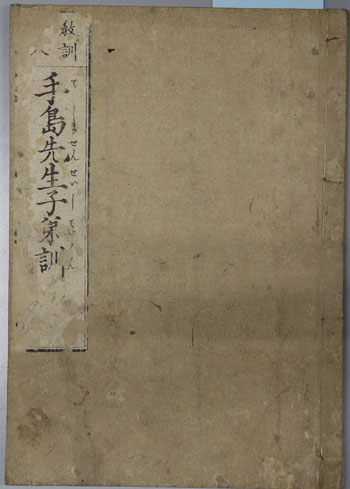 教訓
八
手島先生子弟訓
てしませんせいしていくん